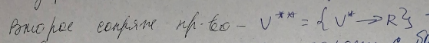 Второе сопряж пр-во – V** = {V* → R}